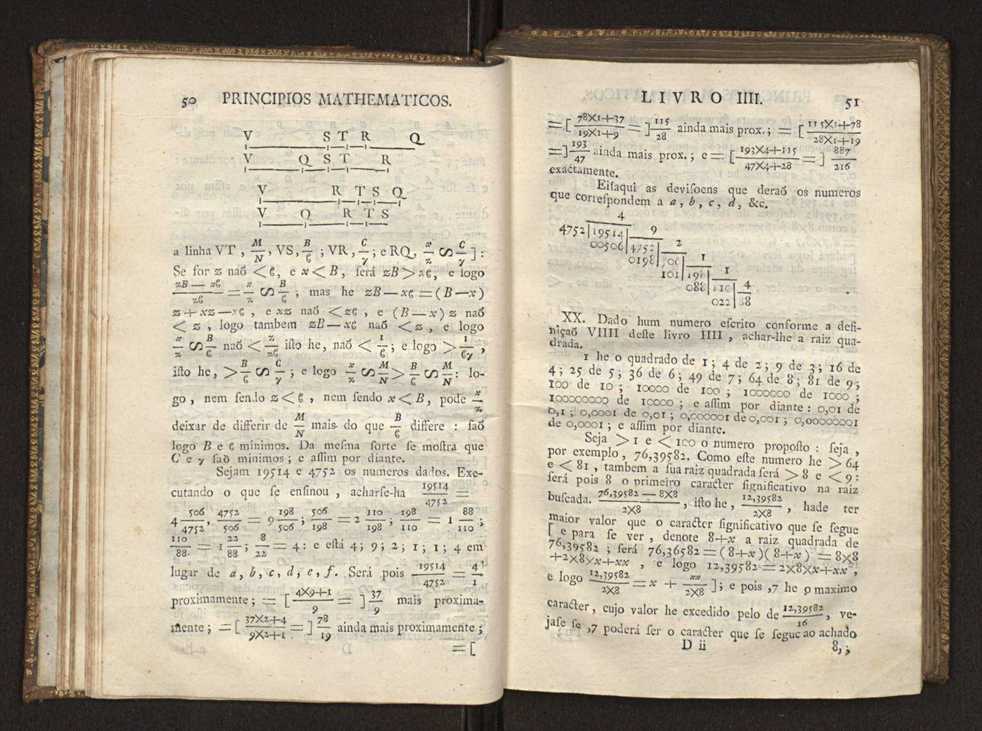 50 PRINCIPIOS MATHEMATICOS.
V S T R Q
V Q S T R
V R T S Q
V Q R T S
a linha VT , M/N , VS, B/ϐ ; VR , C/γ ; e RQ, x/z ᔕ C/γ ] :
Se for z naõ < ϐ, e x < B, ſerá zB > xϐ, e logo
zB — xϐ / zϐ = x/z ᔕ B/ϐ ; mas he zB — xϐ = (B — x)
z + xz — xϐ , e xz naõ < xϐ , e (B — x) z naõ
< z , logo tambem zB — xϐ naõ < z , e logo
x/z ᔕ B/ϐ naõ < z/zϐ iſto he, naõ < 1/ϐ ; e logo > 1/ϐγ ,
iſto he, > B/ϐ ᔕ C/γ ; e logo x/z ᔕ M/N > B/ϐ ᔕ M/N : lo-
go , nem ſendo z < ϐ , nem ſendo x < B, pode x/z
deixar de differir de M/N mais do que B/ϐ differe : ſaõ
logo B e ϐ minimos. Da meſma ſorte ſe moſtra que
C e γ ſaõ minimos ; e aſſim por diante.
Sejam 19514 e 4752 os numeros dados. Exe-
cutando o que ſe enſinou , acharſe-ha 19514/4752 =
4 506/4752, 4752/506 = 9 198/506 ; 506/198 = 2 110/198 ; 198/110 = 1 88/110 ;
110/88 = 1 22/88 ; 8/22 = 4 : e eſtá 4 ; 9 ; 2 ; 1 ; 1 ; 4 em
lugar de a , b , c , d , e , f . Será pois 19514/4752 = 4/1
proximamente ; = [ 4X9+1/9 = ] 37/9 mais proxima-
mente ; = [ 37X2+4/9X2+1 = ] 78/19 ainda mais proximamente ;
D = [
LIVRO IIII. 51
= [ 78X1+37/19X1+9 = ] 115/28 ainda mais prox. ; = [ 115X1+78/28X1+19
= ] 193/47 ainda mais prox. ; e = [ 193X4+115/47X4+28 = ] 887/216
exactamente.
Eiſaqui as deviſoens que deraõ os numeros
que correſpondem a a , b , c , d , &c.
4
4752 | 19514 | 9
00506 | 4752 | 2
0198 | 506 | 1
101 | 198 | 1
088 | 110 | 4
022 | 88
XX. Dado hum numero eſcrito conforme a defi-
niçaõ VIIII deſte livro IIII , achar-lhe a raiz qua-
drada.
1 he o quadrado de 1 ; 4 de 2 ; 9 de 3 ; 16 de
4 ; 25 de 5 ; 36 de 6 ; 49 de 7 ; 64 de 8 ; 81 de 9 ;
100 de 10 ; 10000 de 100 ; 1000000 de 1000 ;
100000000 de 10000 ; e aſſim por diante : 0,01 de
0,1 ; 0,0001 de 0,01 ; 0,000001 de 0,001 ; 0,00000001
de 0,0001 ; e aſſim por diante.
Seja > 1 e < 100 o numero propoſto : ſeja ,
por exemplo , 76,39582. Como eſte numero he > 64
e < 81 , tambem a ſua raiz quadrada ſerá > 8 e < 9 :
ſerá pois 8 o primeiro caracter ſignificativo na raiz
buſcada. 76,39582 — 8X8 / 2X8 , iſto he , 12,39582/2X8 , hade ter
maior valor que o caracter ſignificativo que ſe ſegue
[ e para ſe ver , denote 8+x a raiz quadrada de
76,39582 ; ſerá 76,36582 = (8+x)(8+x) = 8X8
+2X8Xx+xx , e logo 12,39582 = 2X8Xx+xx ,
e logo 12,39582/2X8 = x + xx/2X8 ] ; e pois ,7 he o maximo
caracter , cujo valor he excedido pelo de 12,39582/16 , ve-
jaſe ſe ,7 poderá ſer o caracter que ſe ſegue ao achado
D ii 8, ;